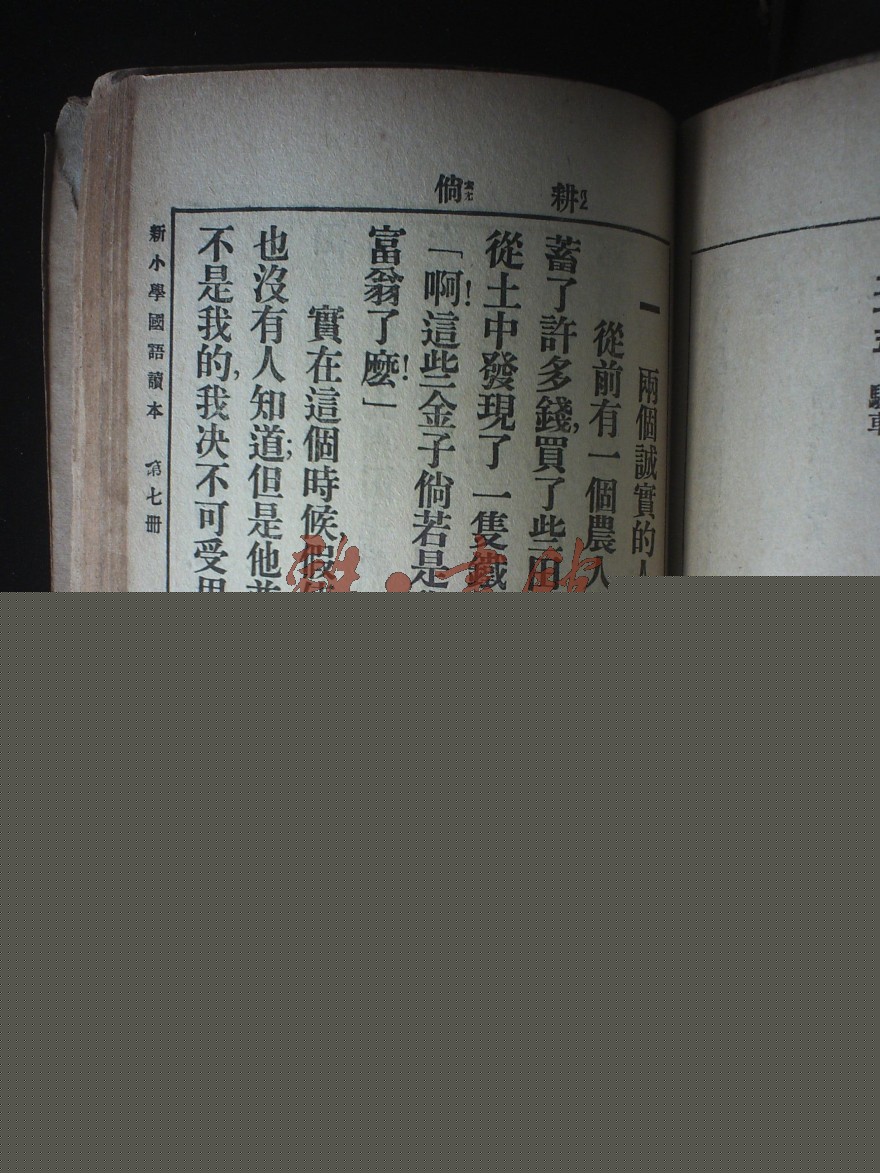 耕 倘
一 兩個誠實的人
從前有一個農人
蓄了許多錢,買了些田
從土中發現了一隻鐵
「啊!這些金子倘若是
富翁了麽!」
實在這個時候,假
也沒有人知道;但是他並
不是我的,我決不可受用
新小學國語讀本 第七冊